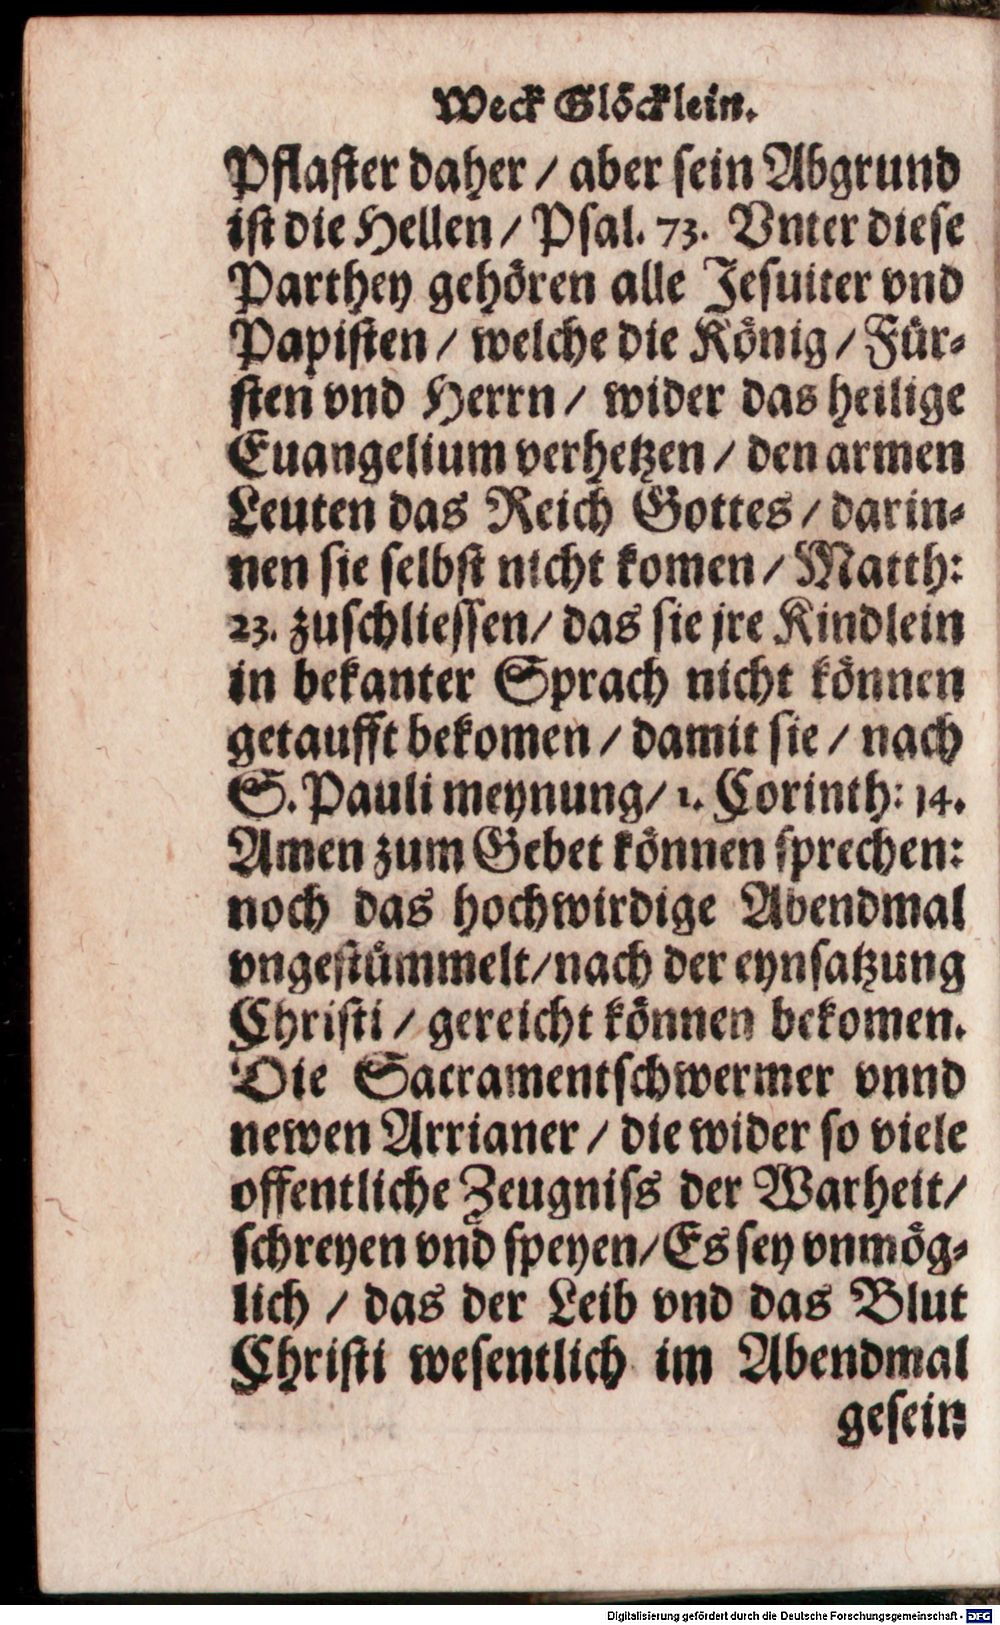 Weck Glöcklein.
Pflaster daher / aber sein Abgrund
ist die Hellen / Psal. 73. Vnter diese
Parthey gehören alle Jesuiter vnd
Papisten / welche die König / Für-
sten vnd Herrn / wider das heilige
Euangelium verhetzen / den armen
Leuten das Reich Gottes / darin-
nen sie selbst nicht komen / Matth:
23. zuschliessen / das sie jre Kindlein
in bekanter Sprach nicht können
getaufft bekomen / damit sie / nach
S. Pauli meynung / 1. Corinth: 14.
Amen zum Gebet können sprechen:
noch das hochwirdige Abendmal
vngestümmelt / nach der eynsatzung
Christi / gereicht können bekomen.
Die Sacramentschwermer vnnd
newen Arrianer / die wider so viele
offentliche Zeugniss der Warheit /
schreyen vnd speyen / Es sey vnmög-
lich / das der Leib vnd das Blut
Christi wesentlich im Abendmal
gesein
Digitalisierung gefördert durch die Deutsche Forschungsgemeinschaft - DFG